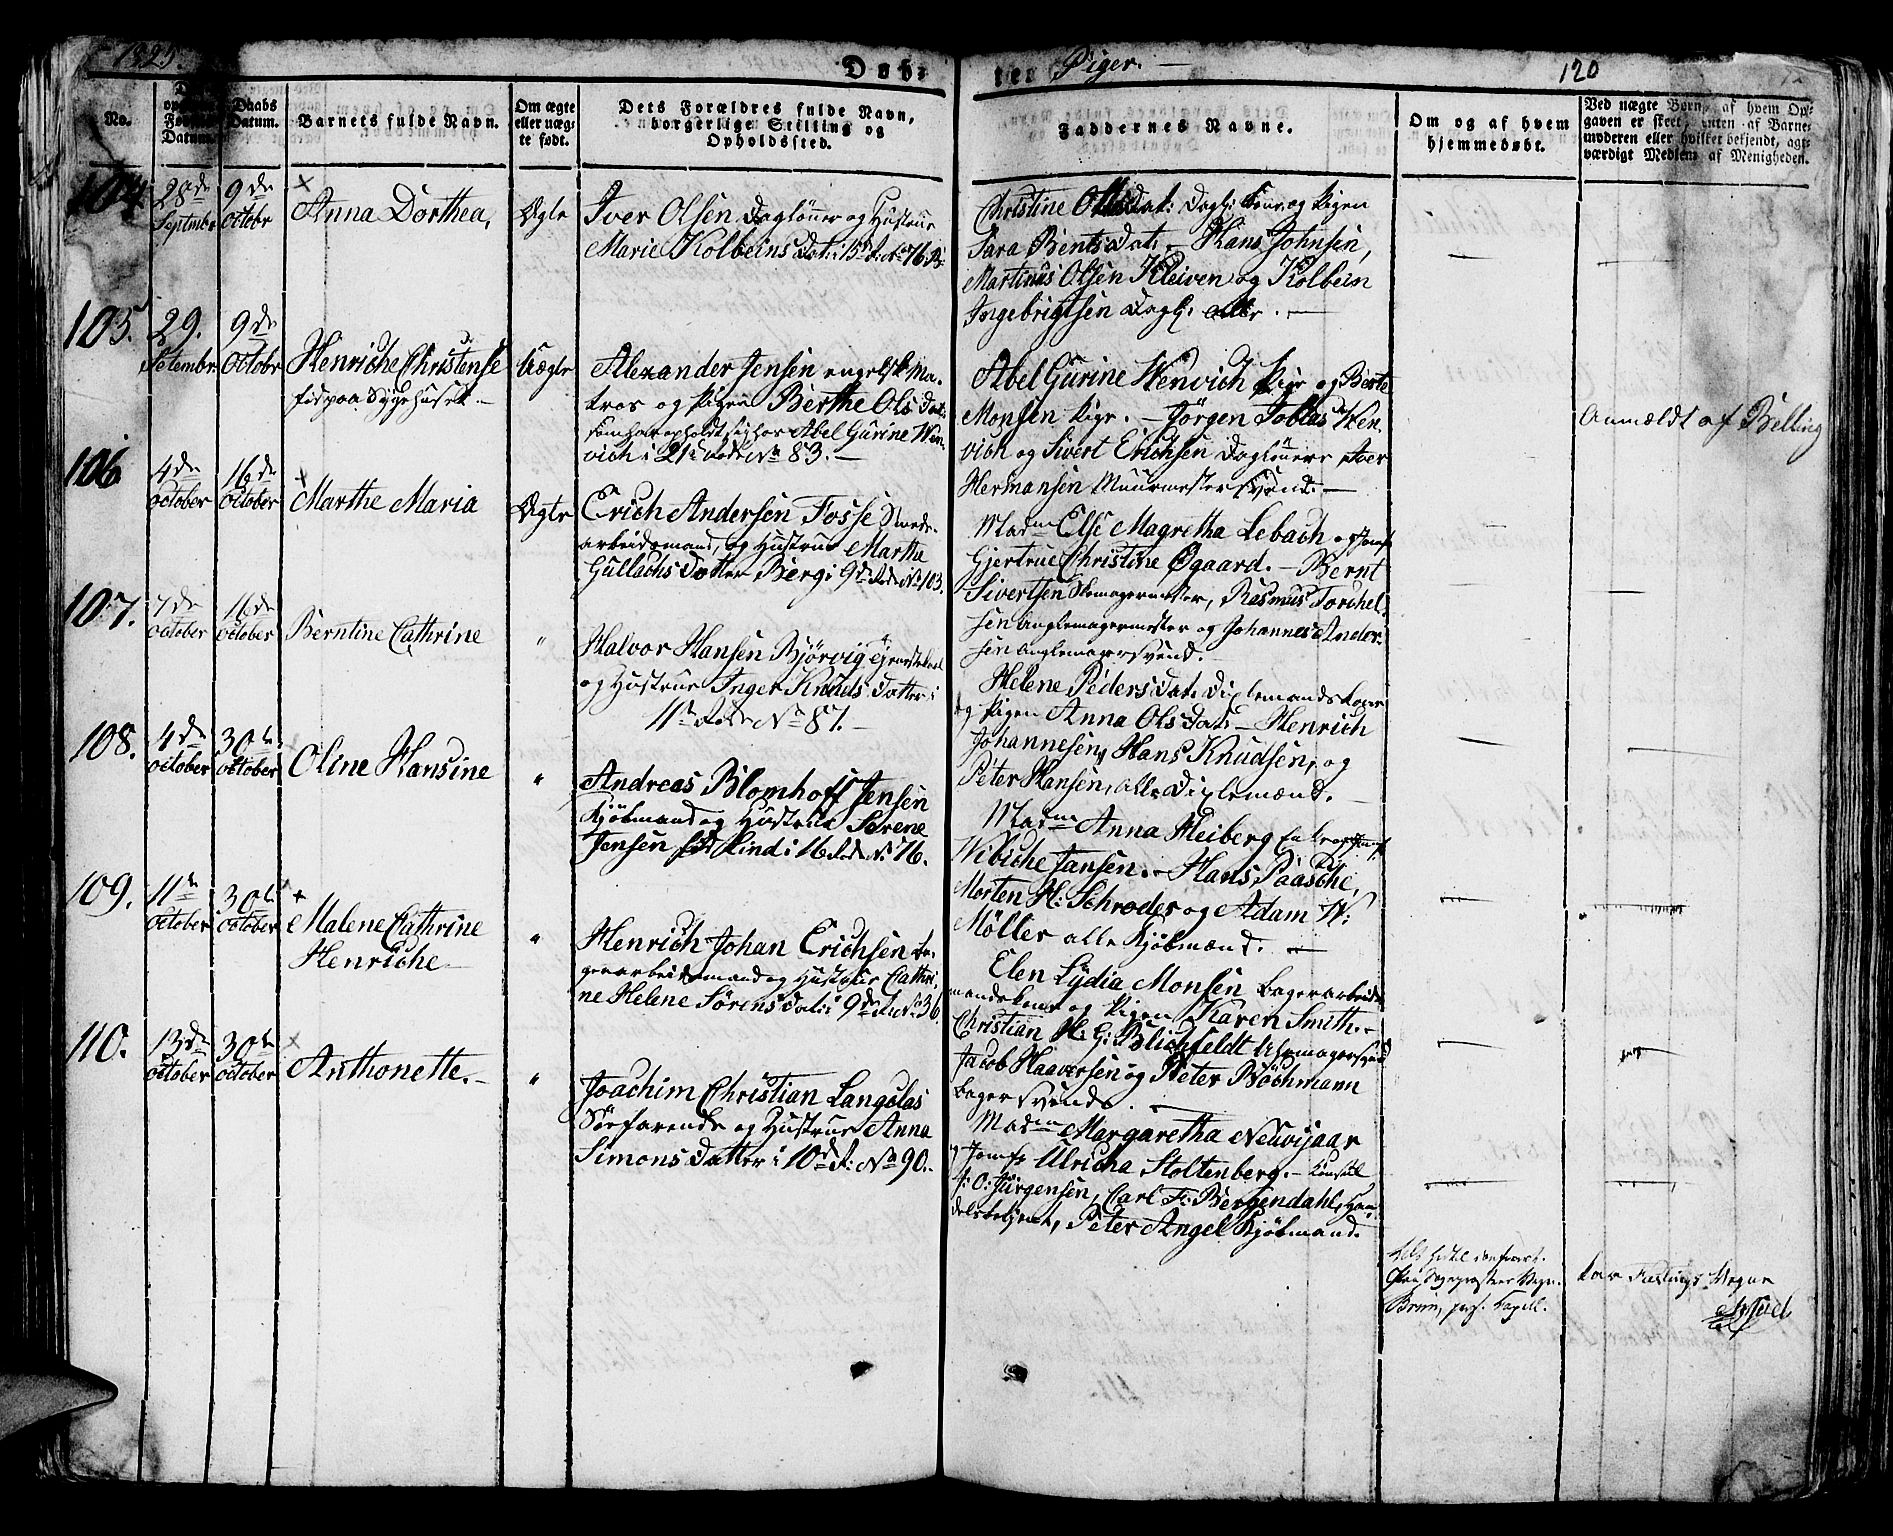 1825.
Døb-
te
Piger. —
120
No.
Datum.
Daabs
Datum.
Barnets fulde Navn.
Om ægte
eller uæg-
te født.
Dets Forældres fulde Navn,
borgerlige Stilling og
Opholdssted.
Faddernes Navne.
Om og af hvem
hjemmedøbt.
Ved uægte Børn, af hvem Op-
gaven er skeet, enten af Barne-
moderen eller hvilket bekjendt, agt-
værdigt Medlem af Menigheden.
104
28de
September
9de
Octobr
Anna Dorthea,
Ægte
Iver Olsen Dagløner og Hustrue
Marie Kolbeins Dat: i 15 R: No 76. B:
Christine Olsdat: Dagl: Kone og Pigen
Sara Bentsdat: — Hans Johnsen,
Martinus Olsen Kleiven og Kolbein
Ingebrigtsen Dagl: alle. —
105.
29.
Setembr
9de
Octobr
Henriche Christense
fød paa Sygehuset. —
Uægte
Alexander Jensen engelsk Ma-
tros og Pigen Berthe Olsdat:
som har opholdt sig hos Abel Gurine Wen-
vich i 21de Rode No 83. —
Abel Gurine Wenvich Pige og Berte
Monsen Pige. — Jørgen Tobias Wen-
vich og Sivert Erichsen Daglønere Iver
Hermansen Muurmestersvend. —
Anmældt af Belling
106
4de
October
16de
October
Marthe Maria
Ægte
Erich Andersen Fosse Smede-
arbeidsmand, og Hustrue Martha
Gullachs Datter Berg i 9de Rode No 103.
Madme Else Magretha Lebach og Jomf
Gjertrue Christine Øgaard. — Bernt
Sivertsen Skomagermester, Rasmus Torchel-
sen Anglemagermester og Johannes Ander-
sen Anglemagersvend. —
107.
7de
October
16de
October
Berntine Cathrine
"
Halvor Hansen Bjørvig
og Hustrue Inger Knuds Datter i
11te Rode No 87. —
Helene Pedersdat. Diplemandskone
og Pigen Anna Olsdat — Henrich
Johannesen, Hans Knudsen, og
Peter Hansen, alle Diplemænd.
108.
4de
October
30te
October
Oline Hansine
"
Andreas Blomhoff Jensen
Kjøbmand og Hustrue Serene
Jensen fød Kind i 16 Rode No 76.
Madme Anna Heiberg Enke og Jomf
Wibiche Jansen. — Hans Paasche,
Morten H: Schrøder og Adam W:
Møller alle Kjøbmænd. —
109.
11te
October
30te
October
Malene Cathrine
Henriche —
"
Henrich Johan Erichsen Ba-
gerarbeidsmand og Hustrue Cathri-
ne Helene Sørens Dat: i 9de R: No 36.
Elen Lydia Monsen Bagerarbeids-
mandskone og Pigen Karen Smith. —
Christian H: G: Blichfeldt Uhrmagersvend
Jacob Haaversen og Peter Bøchmann
Bagersvende. —
110.
13de
October
30te
October
Anthonette. —
"
Joachim Christian Langclas
Søefarende og Hustrue Anna
Simons Datter i 10de R: No 90. —
Madme Margaretha Neuvijaar
og Jomfr Ulricha Stoltenberg. — Konsul
J: O: Jürgensen, Carl F: Bergendahl, Han-
delsbetjent, Peter Angel Kjøbmand.
Brun, pers. Capell.